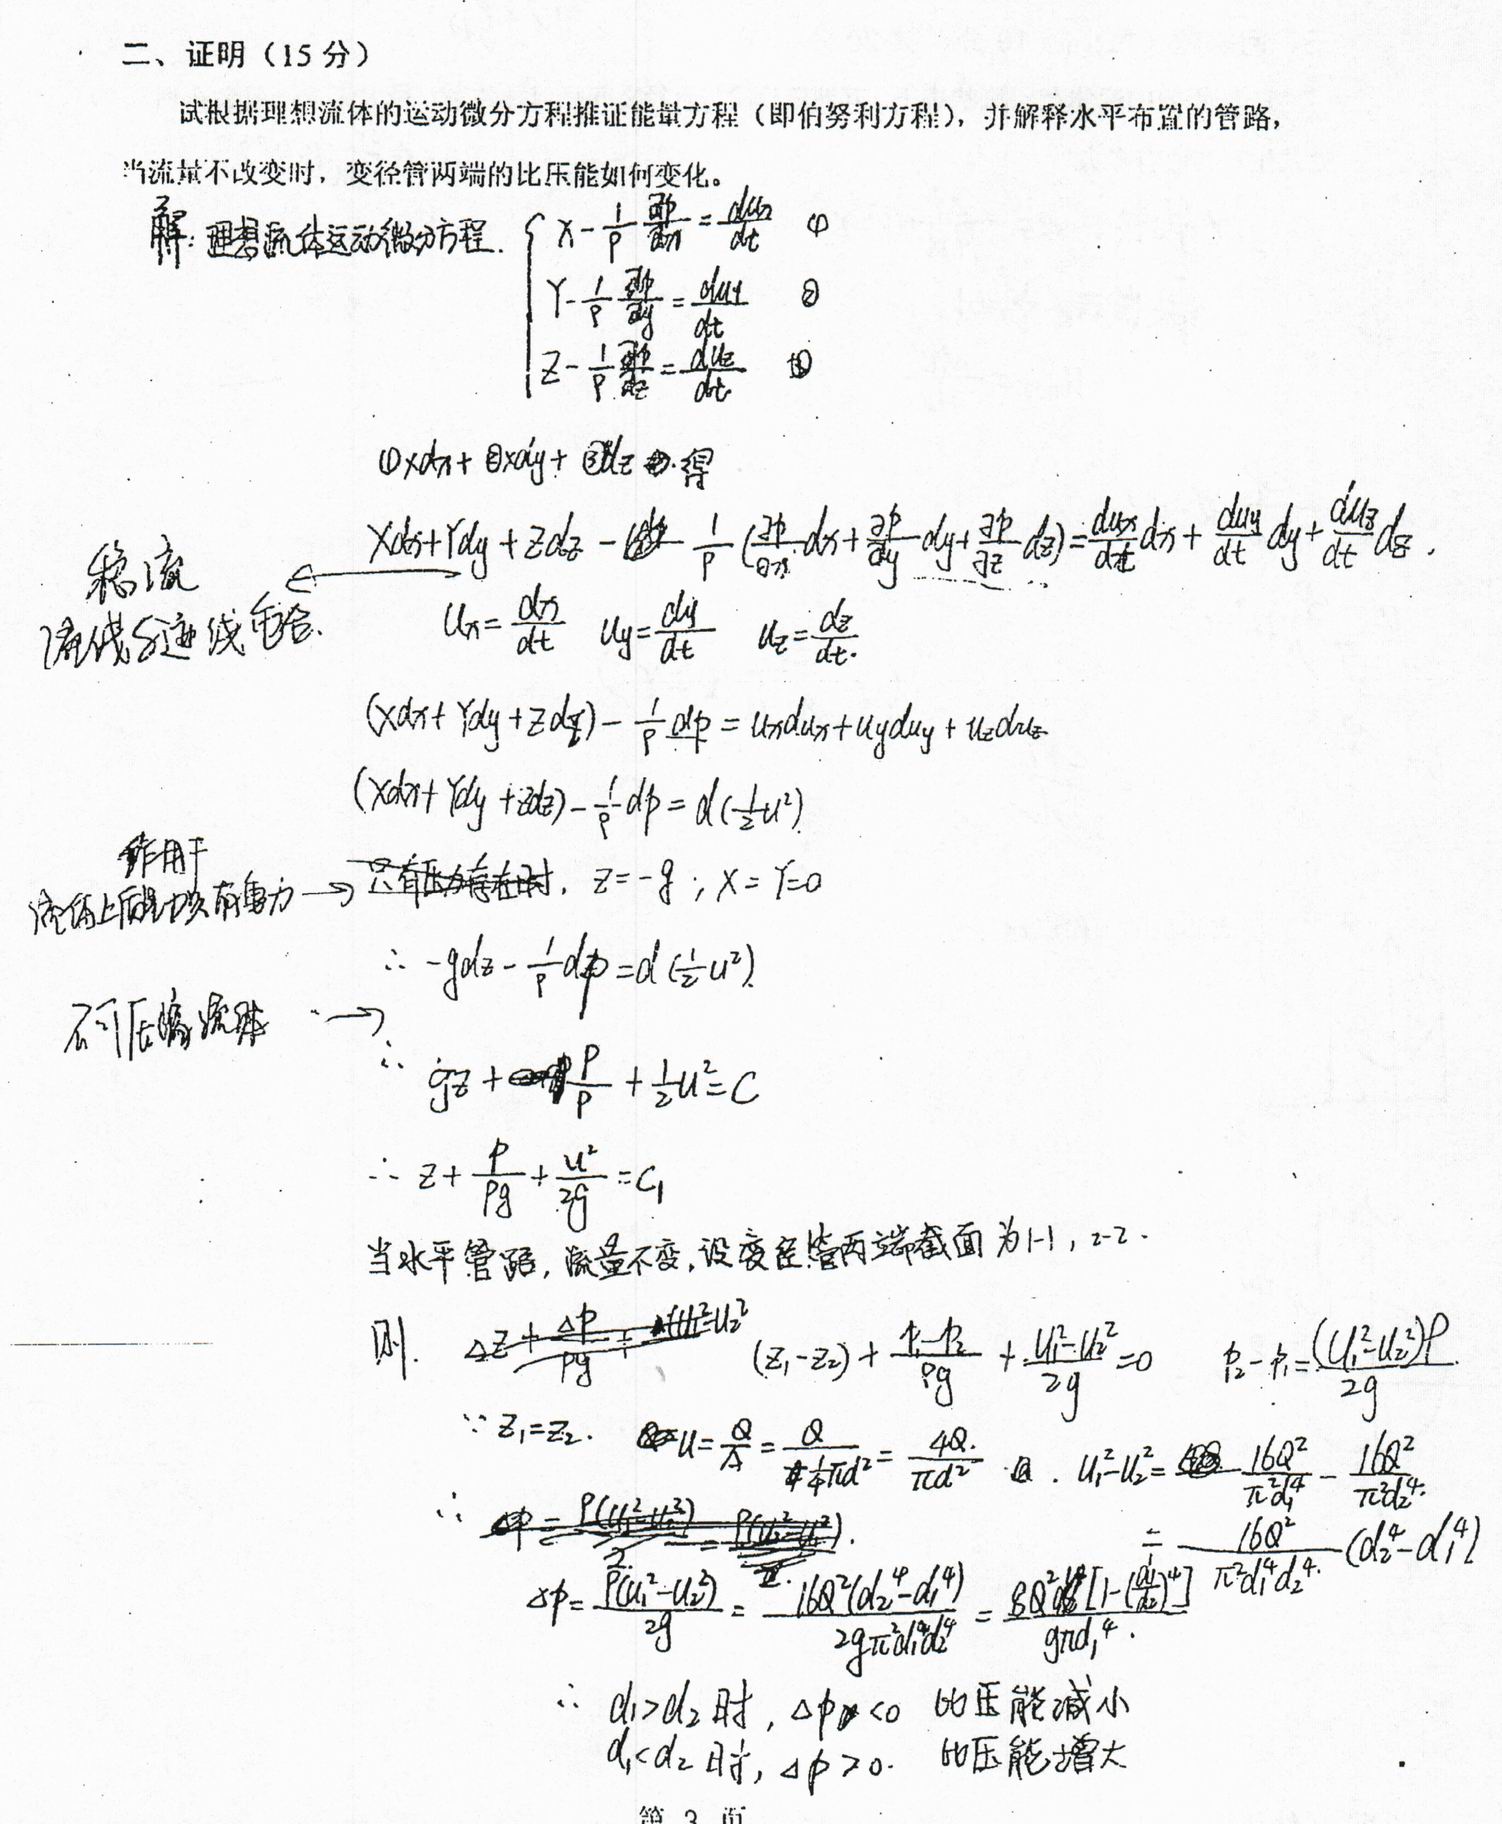 二、证明（15 分）
试根据理想流体的运动微分方程推证能量方程（即伯努利方程），并解释水平布置的管路，
当流量不改变时，变径管两端的比压能如何变化。
解：理想流体运动微分方程. { X - 1/ρ ∂p/∂x = dux/dt ①
Y - 1/ρ ∂p/∂y = duy/dt ②
Z - 1/ρ ∂p/∂z = duz/dt ③
①×dx + ②×dy + ③dz 得
Xdx + Ydy + Zdz - 1/ρ (∂p/∂x dx + ∂p/∂y dy + ∂p/∂z dz) = dux/dt dx + duy/dt dy + duz/dt dz .
稳流
流线与迹线重合.
ux = dx/dt uy = dy/dt uz = dz/dt.
(Xdx + Ydy + Zdz) - 1/ρ dp = uxdux + uyduy + uzduz
(Xdx + Ydy + Zdz) - 1/ρ dp = d(1/2 u²)
作用于
流体上质量力只有重力 → 只有压力存在时, Z = -g ; X = Y = 0
∴ -gdz - 1/ρ dp = d(1/2 u²).
不可压缩流体 →
∴ gz + p/ρ + 1/2 u² = C
∴ z + p/ρg + u²/2g = C₁
当水平管路, 流量不变, 设变径管两端截面为 1-1, 2-2.
则. (z₁-z₂) + p₁-p₂/ρg + u₁²-u₂²/2g = 0 p₂-p₁ = (u₁²-u₂²)ρ/2g
∵ z₁=z₂. u = Q/A = Q/¼πd² = 4Q/πd² . u₁²-u₂² = 16Q²/π²d₁⁴ - 16Q²/π²d₂⁴
= 16Q²/π²d₁⁴d₂⁴ (d₂⁴-d₁⁴)
∴
Δp = ρ(u₁²-u₂²)/2g = 16Q²(d₂⁴-d₁⁴)/2gπ²d₁⁴d₂⁴ = 8Q²[1-(d₁/d₂)⁴]/gπd₁⁴.
∴ d₁>d₂ 时, Δp <0 比压能减小
d₁<d₂ 时, Δp >0. 比压能增大
第 3 页